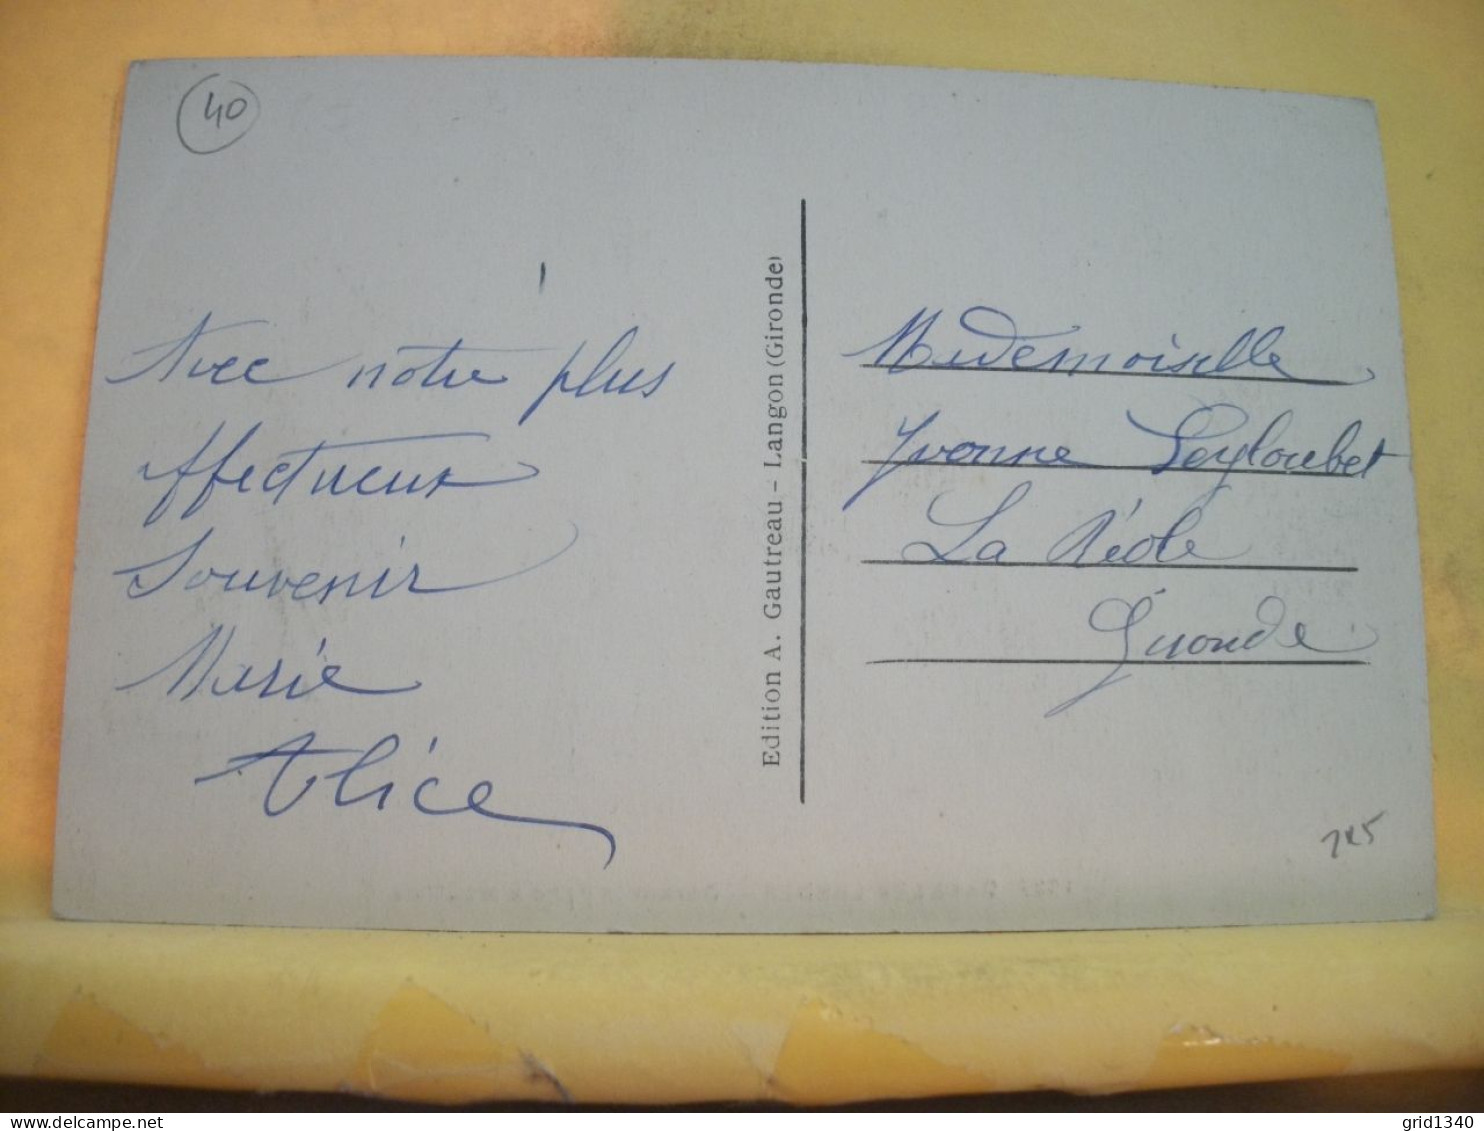 40
Avec notre plus
affectueux
Souvenir
Marie
Alice
Edition A. Gautreau - Langon (Gironde)
Mademoiselle
Yvonne Leyloubet
La Réole
Gironde
grid1340